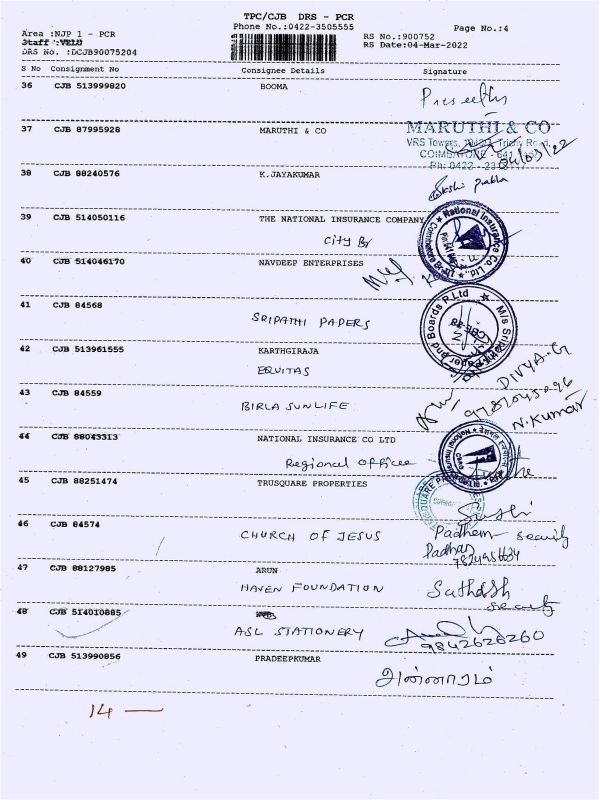 TPC/CJB DRS - PCR
Phone No.:0422-3505555
Page No.:4
Area :NJP 1 - PCR
Staff :VELU
DRS No. :DCJB90075204
RS No.:900752
RS Date:04-Mar-2022
S No Consignment No Consignee Details Signature
36 CJB 513999820 BOOMA
37 CJB 87995928 MARUTHI & CO
MARUTHI & CO
VRS Towers, Trichy Road,
COIMBATORE - 641
Ph: 0422 -
04/03/22
38 CJB 88240576 K.JAYAKUMAR
39 CJB 514050116 THE NATIONAL INSURANCE COMPANY
City Br
National Insurance Co. Ltd.
40 CJB 514046170 NAVDEEP ENTERPRISES
41 CJB 84568 SRIPATHI PAPERS
42 CJB 513961555 KARTHGIRAJA
EQUITAS
DIVYA.G
43 CJB 84559 BIRLA SUNLIFE
N.Kumar
44 CJB 88043313 NATIONAL INSURANCE CO LTD
Regional Office
45 CJB 88251474 TRUSQUARE PROPERTIES
46 CJB 84574 CHURCH OF JESUS
Padhan
7824956634
47 CJB 88127985 ARUN
HAVEN FOUNDATION
48 CJB 514010885
ASL STATIONERY
9842626260
49 CJB 513990856 PRADEEPKUMAR
14 —